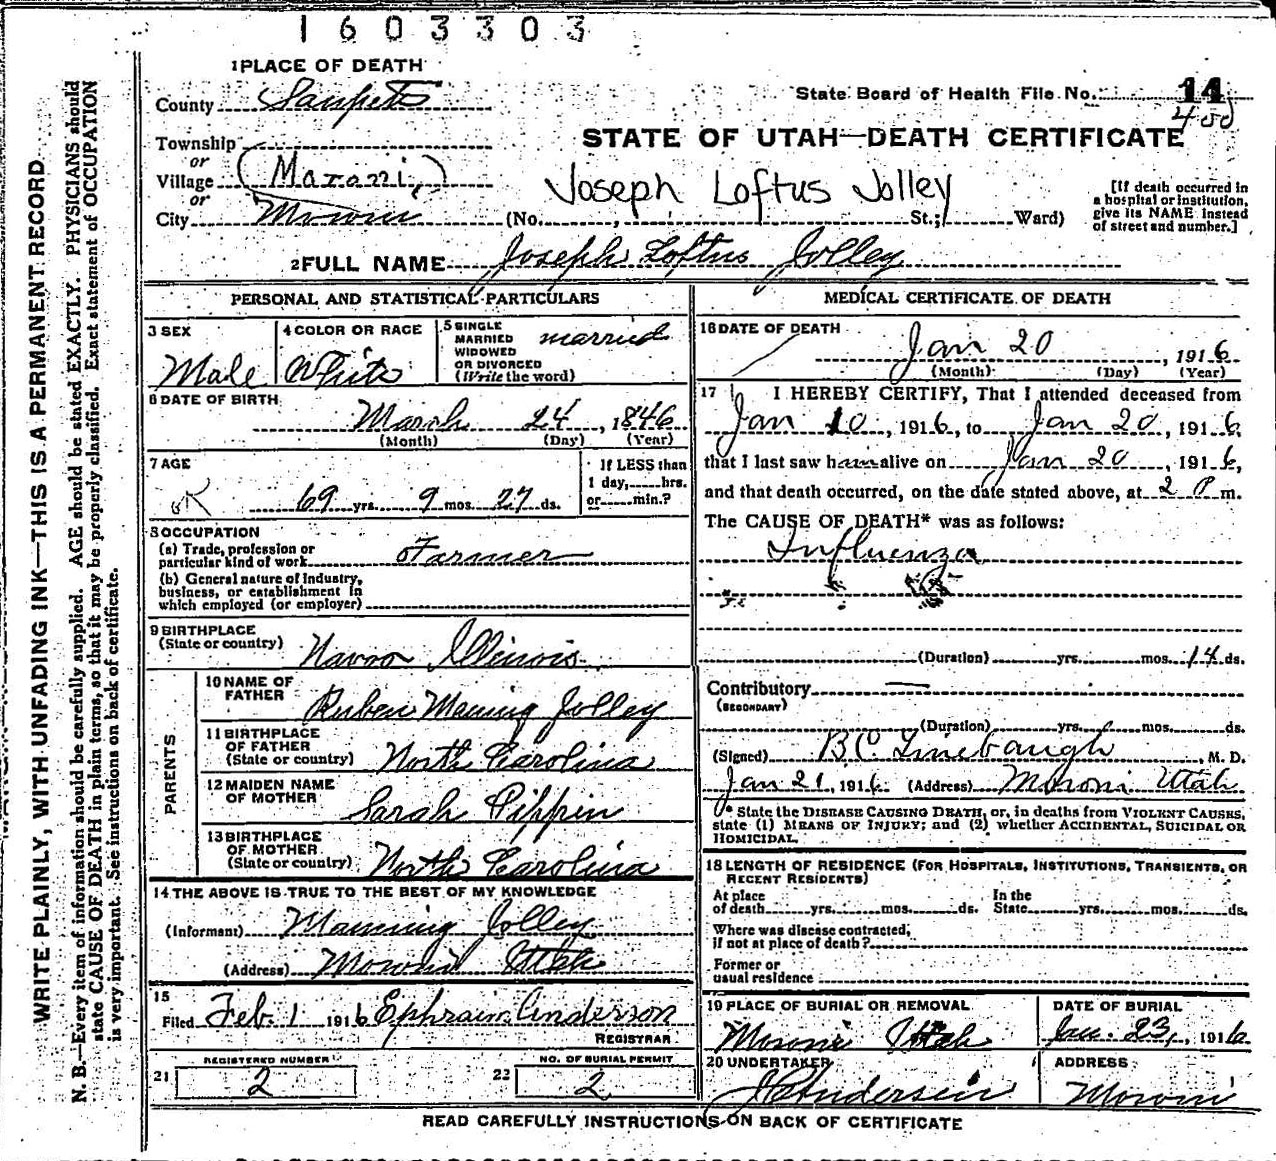 1603303
1 PLACE OF DEATH
County Sanpete
State Board of Health File No. 14
400
STATE OF UTAH—DEATH CERTIFICATE
Township
or
Village (Maroni,)
or
City Moroni (No. , St.; Ward)
Joseph Loftus Jolley
[If death occurred in
a hospital or institution,
give its NAME instead
of street and number.]
2 FULL NAME Joseph Loftus Jolley
PERSONAL AND STATISTICAL PARTICULARS
3 SEX
Male
4 COLOR OR RACE
White
5 SINGLE
MARRIED
WIDOWED
OR DIVORCED
(Write the word)
married
6 DATE OF BIRTH
March 24, 1846
(Month) (Day) (Year)
7 AGE
OK
69 yrs. 9 mos. 27 ds.
If LESS than
1 day, hrs.
or min.?
8 OCCUPATION
(a) Trade, profession or
particular kind of work Farmer
(b) General nature of industry,
business, or establishment in
which employed (or employer)
9 BIRTHPLACE
(State or country) Navoo Illinois
PARENTS
10 NAME OF
FATHER Ruben Manning Jolley
11 BIRTHPLACE
OF FATHER
(State or country) North Carolina
12 MAIDEN NAME
OF MOTHER Sarah Pippin
13 BIRTHPLACE
OF MOTHER
(State or country) North Carolina
14 THE ABOVE IS TRUE TO THE BEST OF MY KNOWLEDGE
(Informant) Manning Jolley
(Address) Moroni Utah
15
Filed Feb. 1 1916 Ephraim Anderson
REGISTRAR
REGISTERED NUMBER
21 2
NO. OF BURIAL PERMIT
22 2
MEDICAL CERTIFICATE OF DEATH
16 DATE OF DEATH
Jan 20, 1916
(Month) (Day) (Year)
17 I HEREBY CERTIFY, That I attended deceased from
Jan 10, 1916, to Jan 20, 1916,
that I last saw him alive on Jan 20, 1916,
and that death occurred, on the date stated above, at 2 P m.
The CAUSE OF DEATH* was as follows:
Influenza
(Duration) yrs. mos. 14 ds.
Contributory —
(SECONDARY)
(Duration) yrs. mos. ds.
(Signed) B C Linebaugh, M. D.
Jan 21, 1916 (Address) Moroni Utah
* State the DISEASE CAUSING DEATH, or, in deaths from VIOLENT CAUSES,
state (1) MEANS OF INJURY; and (2) whether ACCIDENTAL, SUICIDAL OR
HOMICIDAL.
18 LENGTH OF RESIDENCE (FOR HOSPITALS, INSTITUTIONS, TRANSIENTS, OR
RECENT RESIDENTS)
At place In the
of death yrs. mos. ds. State yrs. mos. ds.
Where was disease contracted,
if not at place of death?
Former or
usual residence
19 PLACE OF BURIAL OR REMOVAL
Moroni Utah
DATE OF BURIAL
Jan. 23, 1916
20 UNDERTAKER
Andersen
ADDRESS
Moroni
READ CAREFULLY INSTRUCTIONS ON BACK OF CERTIFICATE
WRITE PLAINLY, WITH UNFADING INK—THIS IS A PERMANENT RECORD
N. B.—Every item of information should be carefully supplied. AGE should be stated EXACTLY. PHYSICIANS should
state CAUSE OF DEATH in plain terms, so that it may be properly classified. Exact statement of OCCUPATION
is very important. See instructions on back of certificate.